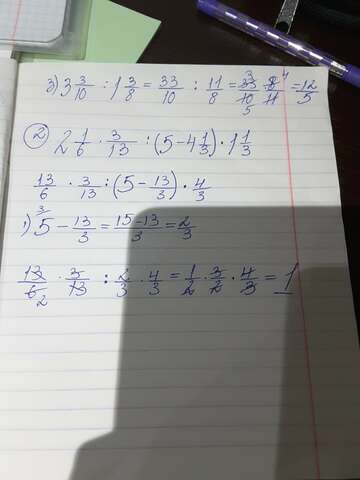 3) 3 3/10 : 1 3/8 = 33/10 : 11/8 = 33/10 · 8/11 = 12/5
3 4
5
② 2 1/6 · 3/13 : (5 - 4 1/3) · 1 1/3
13/6 · 3/13 : (5 - 13/3) · 4/3
1) 5 - 13/3 = 15-13/3 = 2/3
3
13/6 · 3/13 : 2/3 · 4/3 = 1/2 · 3/2 · 4/3 = 1
2